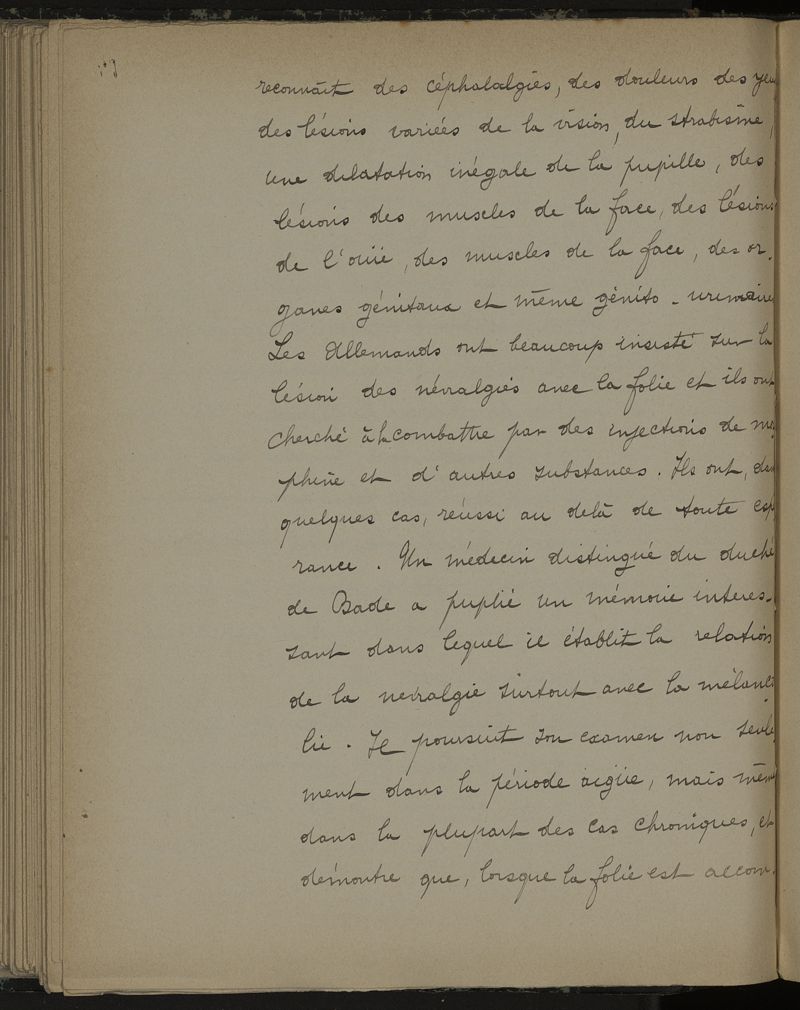 reconnait des céphalalgies, des douleurs des yeu
des lésions variées de la vision, du strabisme,
une dilatation inégale de la pupille, des
lésions des muscles de la face, des lésions
de l'ouïe, des muscles de la face, des or-
ganes génitaux et même génito-urinaire
Les Allemands ont beaucoup insisté sur la
lésion des névralgies avec la folie et ils ont
cherché à la combattre par des injections de mor
phine et d'autres substances. Ils ont, dan
quelques cas, réussi au delà de toute espé
rance. Un médecin distingué du duché
de Bade a puplié un mémoire interes-
sant dans lequel il établit la relation
de la nevralgie surtout avec la mélanco
lie. Il poursuit son examen non seule
ment dans la période aigüe, mais même
dans la plupart des cas chroniques, et
démontre que, lorsque la folie est accom-